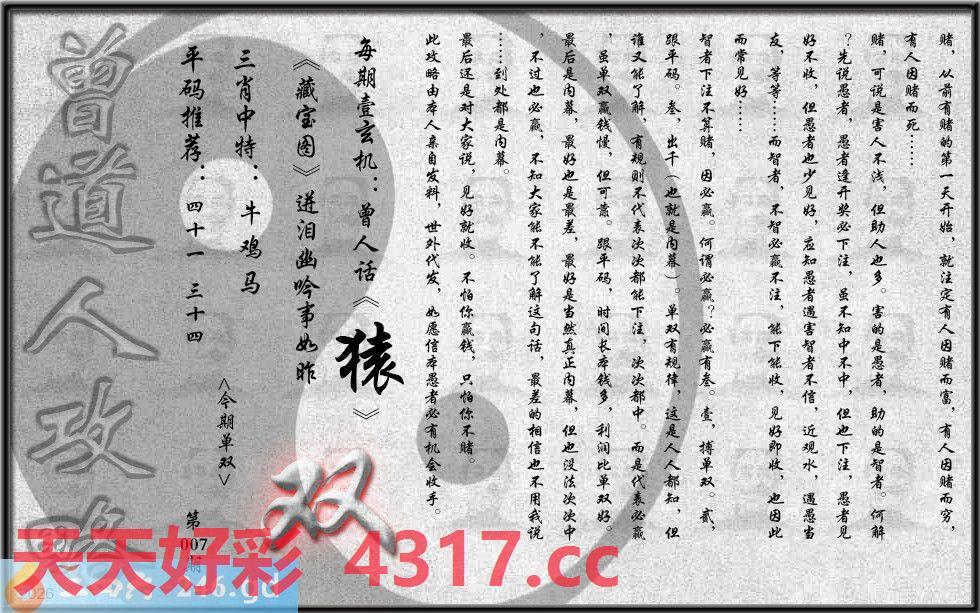 赌，从前有赌的第一天开始，就注定有人因赌而富，有人因赌而穷，
有人因赌而死……
赌，可说是害人不浅，但助人也多。害的是愚者，助的是智者。何解
？先说愚者，愚者逢开奖必下注，虽不知中不中，但也下注，愚者见
好不收，但愚者也少见好，应知愚者遇害智者不信，近观水，遇愚当
友，等等……而智者，不智必赢不注，能下能收，见好即收，也因此
而常见好……
智者下注不算赌，因必赢。何谓必赢？必赢有叁。壹，搏单双。贰，
跟平码。叁，出千（也就是内幕）。单双有规律，这是人人都知，但
谁又能了解，有规则不代表次次都能下注，次次都中。而是代表必赢
，虽单双赢钱慢，但可靠。跟平码，时间长本钱多，利润比单双好。
最后是内幕，最好也是最差，最好是当然真正内幕，但也没法次次中
，不过也必赢，不知大家能不能了解这句话，最差的相信也不用我说
……到处都是内幕。
最后还是对大家说，见好就收。不怕你赢钱，只怕你不赌。
此攻略由本人亲自发料，世外代发，如愿信本愚者必有机会收手。
每期壹玄机：曾人话《猿》
《藏宝图》迸泪幽吟事如昨
三肖中特：牛 鸡 马
平码推荐：四十一 三十四
<今期单双>
双
第
007
期
曾道人攻略
天天好彩 4317.cc
2026